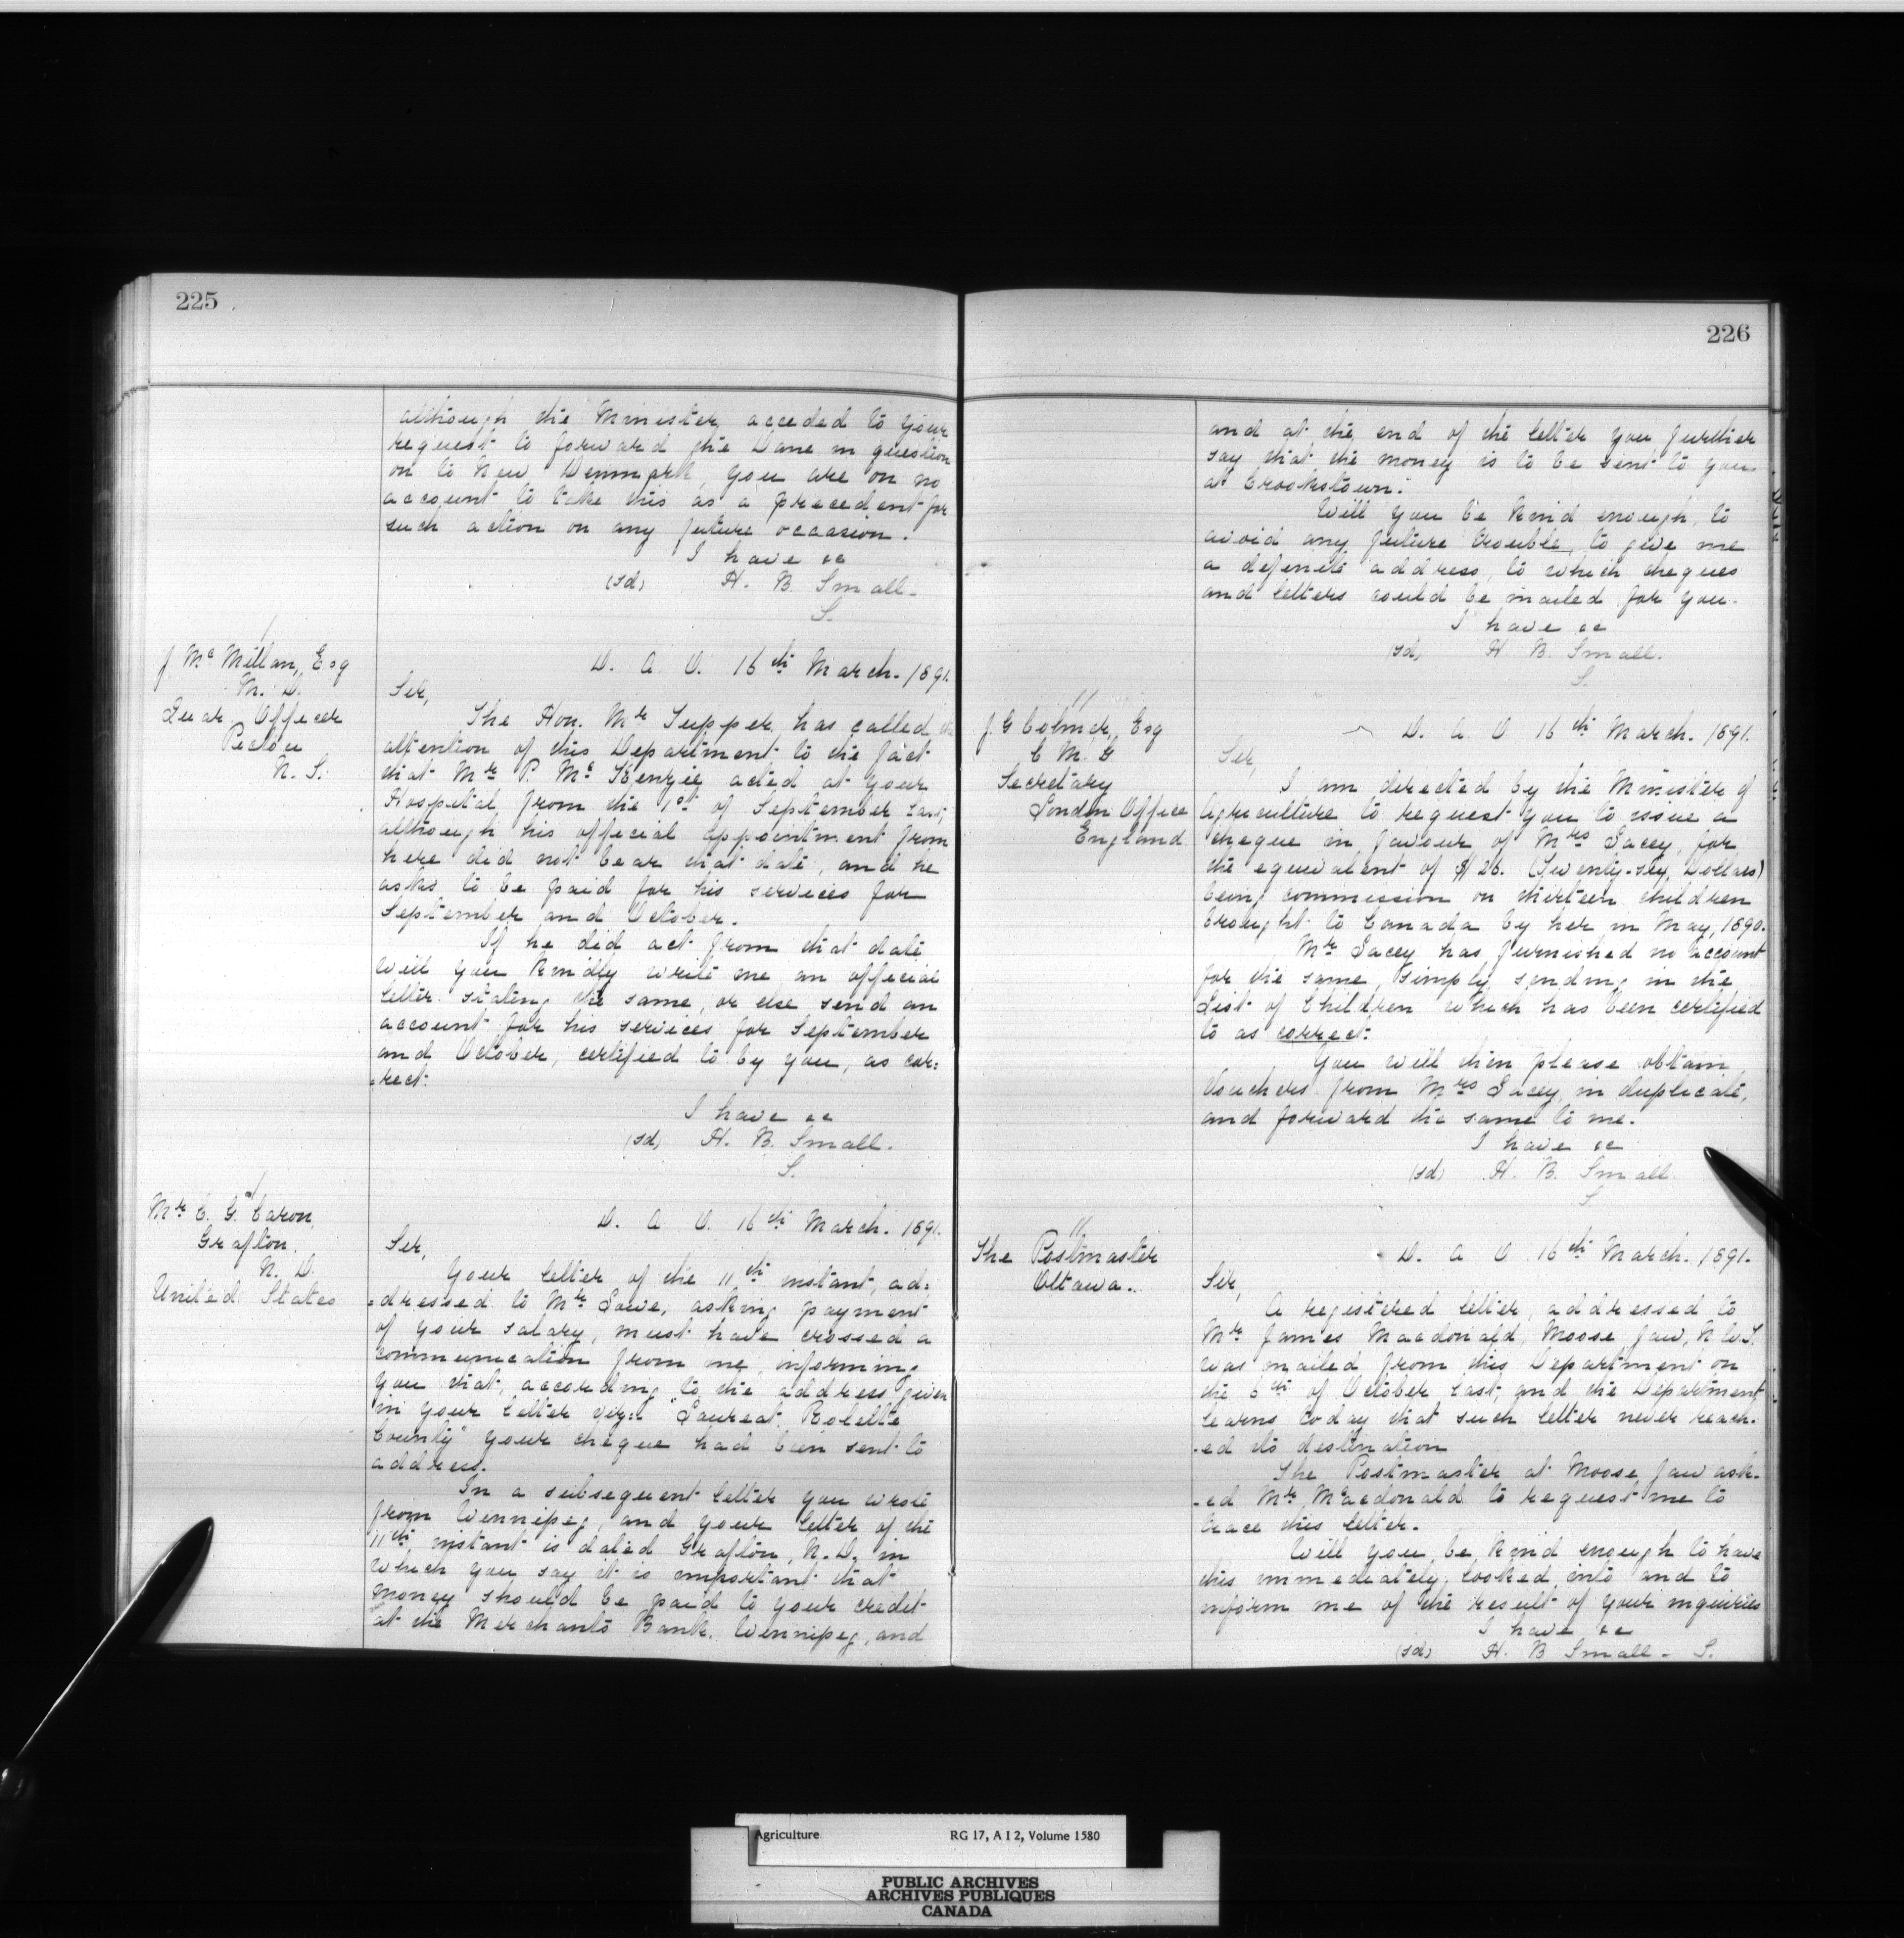 225
although the Minister acceded to your
request to forward the Dane in question
on to New Denmark, you are on no
account to take this as a precedent for
such action on any future occasion.
I have &c
(sd) H. B. Small.
S.
J. Mc Millan, Esq
M. D.
Quar. Officer
Pictou
N. S.
D. A. O. 16th March. 1891.
Sir,
The Hon. Mr Tupper, has called the
attention of this Department to the fact
that Mr P. McKenzie acted at your
Hospital from the 1st of September last,
although his official appointment from
here did not bear that date, and he
asks to be paid for his services for
September and October.
If he did act from that date
will you kindly write me an official
letter stating the same, or else send an
account for his services for September
and October, certified to by you, as cor=
=rect.
I have &c
(sd) H. B. Small.
S.
Mr C. G. Caron,
Grafton.
N. D.
United States
D. A. O. 16th March. 1891.
Sir,
Your letter of the 11th instant, ad=
=dressed to Mr Lowe, asking payment
of your salary, must have crossed a
communication from me, informing
you that, according to the address given
in your letter viz: "Laureat, Rolette
County" your cheque had been sent to
address.
In a subsequent letter you wrote
from Winnipeg, and your letter of the
11th, instant is dated Grafton, N. D. in
which you say it is important that
money should be paid to your credit
at the Merchants Bank. Winnipeg, and
226
and at the end of the letter you further
say that the money is to be sent to you
at Crookstown.
Will you be kind enough, to
avoid any future trouble, to give me
a definite address, to which cheques
and letters could be mailed for you.
I have &c
(sd) H. B. Small.
S.
11
J. G. Colmer, Esq
C. M. G
Secretary
London Office
England
D. A. O 16th March. 1891.
Sir,
I am directed by the Minister of
Agriculture to request you to issue a
cheque in favour of Mrs Lacey, for
the equivalent of $26. (Twenty-six, Dollars)
being commission on thirteen children
brought to Canada by her in May, 1890.
Mr Lacey has furnished no account
for the same, simply sending in the
List of Children which has been certified
to as correct.
You will then please obtain
Vouchers from Mrs Lacey, in duplicate,
and forward the same to me.
I have &c
(sd) H. B. Small.
S
11
The Postmaster
Ottawa.
D. A. O 16th March. 1891.
Sir,
A registered letter, addressed to
Mr James Macdonald, Moose Jaw, N.W.T.
was mailed from this Department on
the 6th of October last, and the Department
learns today that such letter never reach-
-ed its destination
The Postmaster at Moose Jaw ask-
-ed Mr Macdonald to request me to
trace this letter.
Will you, be kind enough to have
this immediately looked into and to
inform me of the result of your inquiries
I have &c
(sd) H. B Small. S.
Agriculture RG 17, A I 2, Volume 1580
PUBLIC ARCHIVES
ARCHIVES PUBLIQUES
CANADA